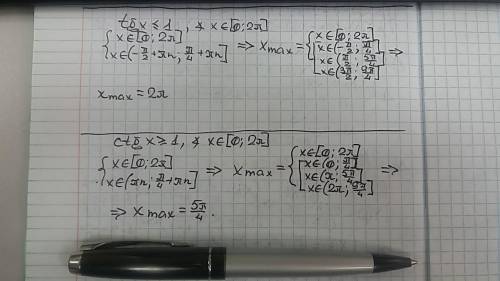 tg x ≤ 1, ∢ x∈[0; 2π]
{ x∈[0; 2π] x∈(-π/2+πn; π/4+πn] => x max = { x∈[0; 2π] [ x∈(-π/2; π/4] x∈(π/2; 5π/4] x∈(3π/2; 9π/4] =>
x max = 2π
ctg x ≥ 1, ∢ x∈[0; 2π]
{ x∈[0; 2π] x∈(πn; π/4+πn] => x max = { x∈[0; 2π] [ x∈(0; π/4] x∈(π; 5π/4] x∈(2π; 9π/4] =>
=> x max = 5π/4.